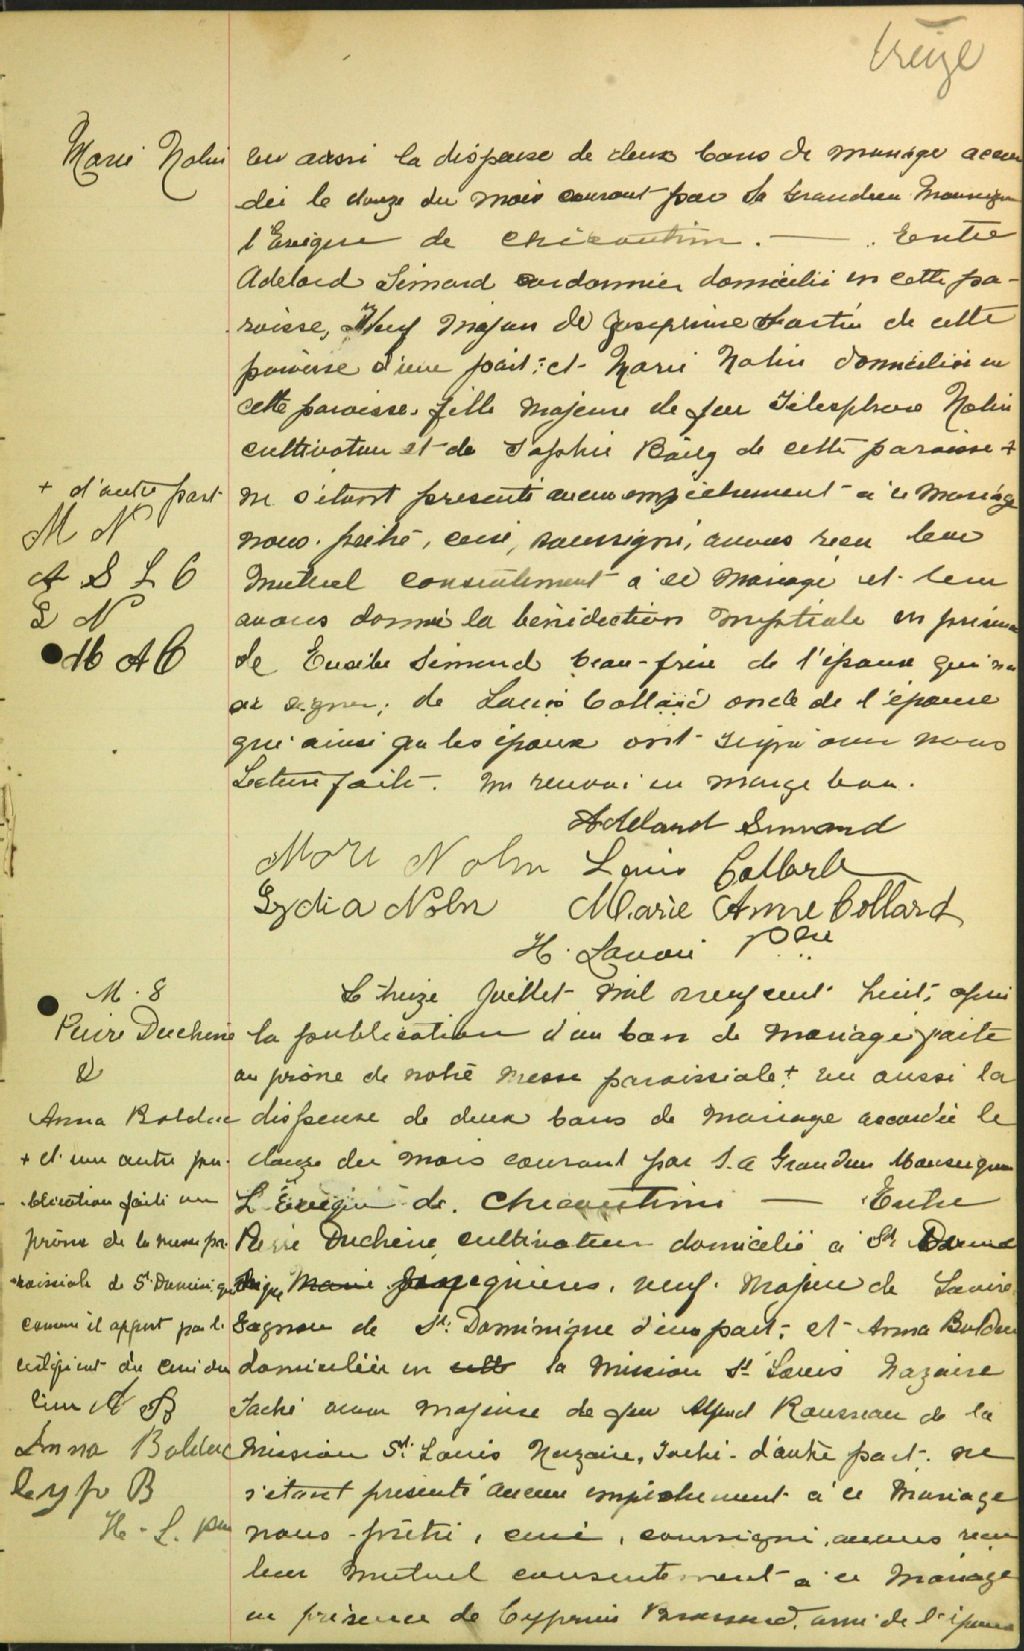 treize
Marie Nolin
vu aussi la dispense de deux bans de mariage accor
dée le douze du mois courant par Sa Grandeur Monseigneur
l'Evêque de Chicoutimi. — . Entre
Adelard Simard cordonnier domicilié en cette pa-
roisse, Veuf majeur de Josephine Fortin de cette
paroisse d'une part; et Marie Nolin domiciliée en
cette paroisse, fille majeure de feu Télesphore Nolin
cultivateur et de Sophie Boily de cette paroisse +
+ d'autre part
M N
A S L C
L N
M A C
ne s'étant présenté aucun empêchement à ce mariage
nous, prêtre, curé, soussigné, avons reçu leur
mutuel consentement à ce mariage et leur
avons donné la bénédiction nuptiale en présence
de Eusèbe Simard beau-frère de l'époux qui n'a
su signer; de Louis Collard oncle de l'épouse
qui ainsi que les époux ont signé avec nous
Lecture faite. Un renvoi en marge bon.
Adelard Simard
Mari Nolin Louis Collard
Lydia Nolin Marie Anne Collard
H. Lavoie Ptre
M. 8
Pierre Duchêne
&
Anna Bolduc
+ et une autre pu-
blication faite au
prône de la messe pa-
roissiale de St Dominique
comme il appert par le
certificat du curé du
lieu A B
Anna Bolduc
Cyp B
H. L. Ptre
Le treize Juillet mil neuf cent huit, après
la publication d'un ban de mariage faite
au prône de notre messe paroissiale + vu aussi la
dispense de deux bans de mariage accordée le
douze du mois courant par S.a Grandeur Monseigneur
L'Evêque de Chicoutimi — Entre
Pierre Duchêne cultivateur domicilié à St
Jonquières, veuf majeur de
Gagnon de St Dominique d'une part; et Anna Bolduc
domiciliée en cette la mission St Louis Nazaire
Taché veuve majeure de feu Alfred Rousseau de la
mission St Louis Nazaire, Taché d'autre part. ne
s'étant présenté aucun empêchement à ce mariage
nous prêtre, curé, soussigné, avons reçu
leur mutuel consentement à ce mariage
en présence de Cyprien ami de l'époux